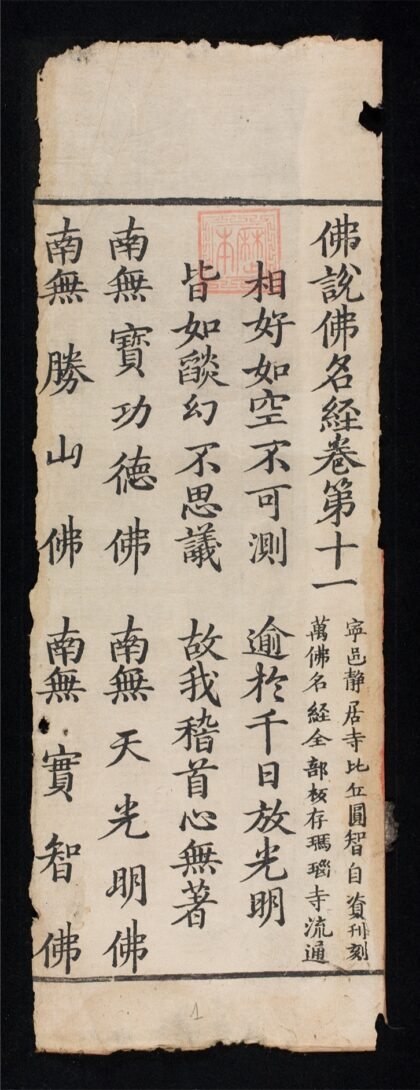 佛說佛名經卷第十一
寧邑静居寺比丘圓智自資刊刻
萬佛名經全部板存瑪瑙寺流通
相好如空不可測　逾於千日放光明
皆如燄幻不思議　故我稽首心無著
南無寶功德佛　南無天光明佛
南無勝山佛　南無實智佛
1